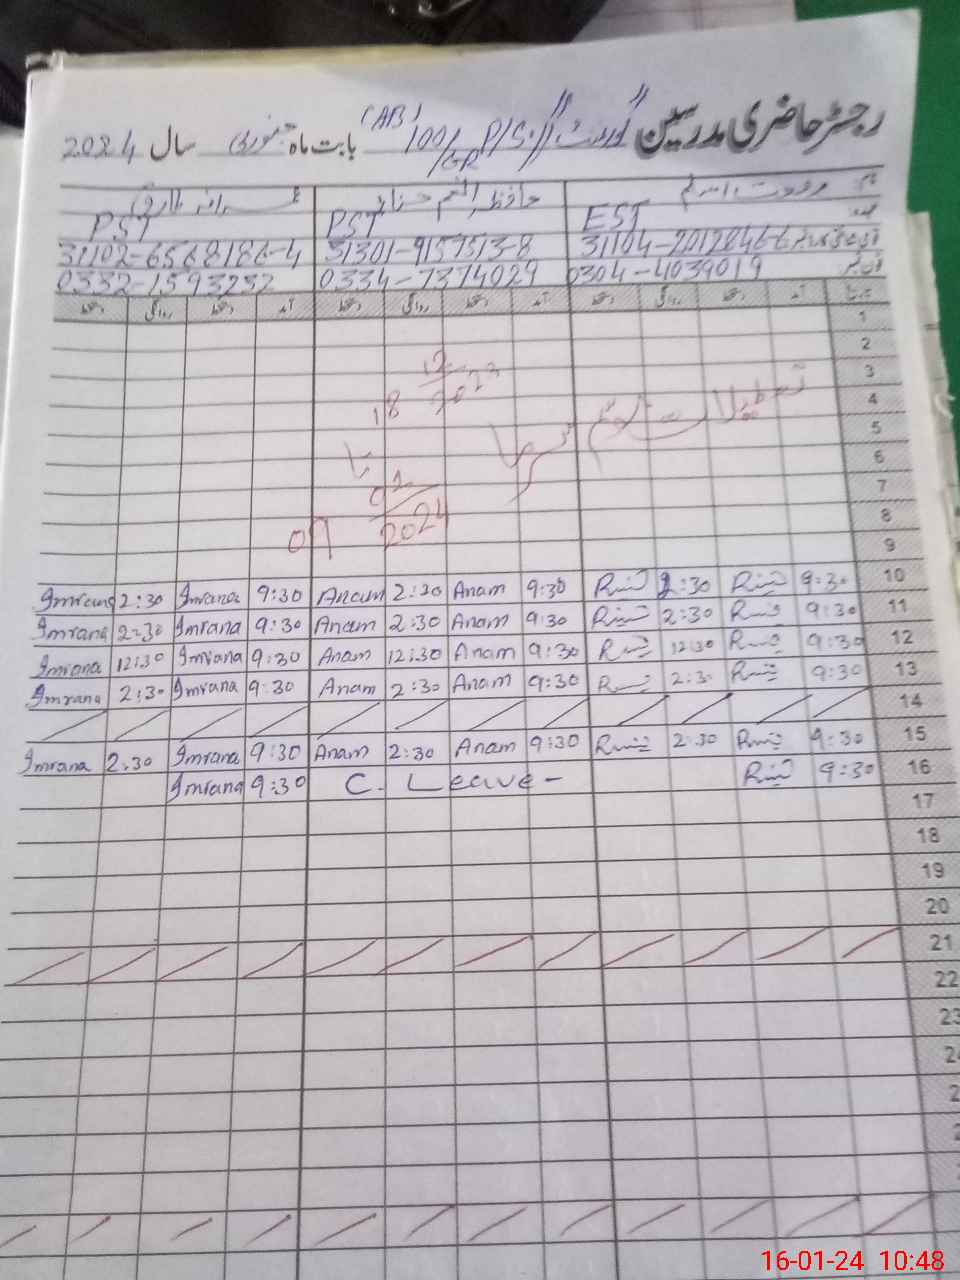 رجسٹر حاضری مدرسین گورنمنٹ P/S 100/GR (AB) بابت ماہ جنوری سال 2024
نام
EST PST PST
31104-2012846-6 31301-9157513-8 31102-6568186-4
0304-4039019 0334-7374029 0332-1593232
تاریخ آمد دستخط روانگی دستخط آمد دستخط روانگی دستخط آمد دستخط روانگی دستخط
1
2
3
4
5
6
7
8
9
تعطیلات موسم سرما
18 12/2023
تا
09 01/2024
Imrana 2:30 Imrana 9:30 Anam 2:30 Anam 9:30 2:30 9:30 10
Imrana 2:30 Imrana 9:30 Anam 2:30 Anam 9:30 2:30 9:30 11
Imrana 12:30 Imrana 9:30 Anam 12:30 Anam 9:30 12:30 9:30 12
Imrana 2:30 Imrana 9:30 Anam 2:30 Anam 9:30 2:30 9:30 13
14
Imrana 2:30 Imrana 9:30 Anam 2:30 Anam 9:30 2:30 9:30 15
Imrana 9:30 C. Leave - 9:30 16
17
18
19
20
21
22
23
16-01-24 10:48